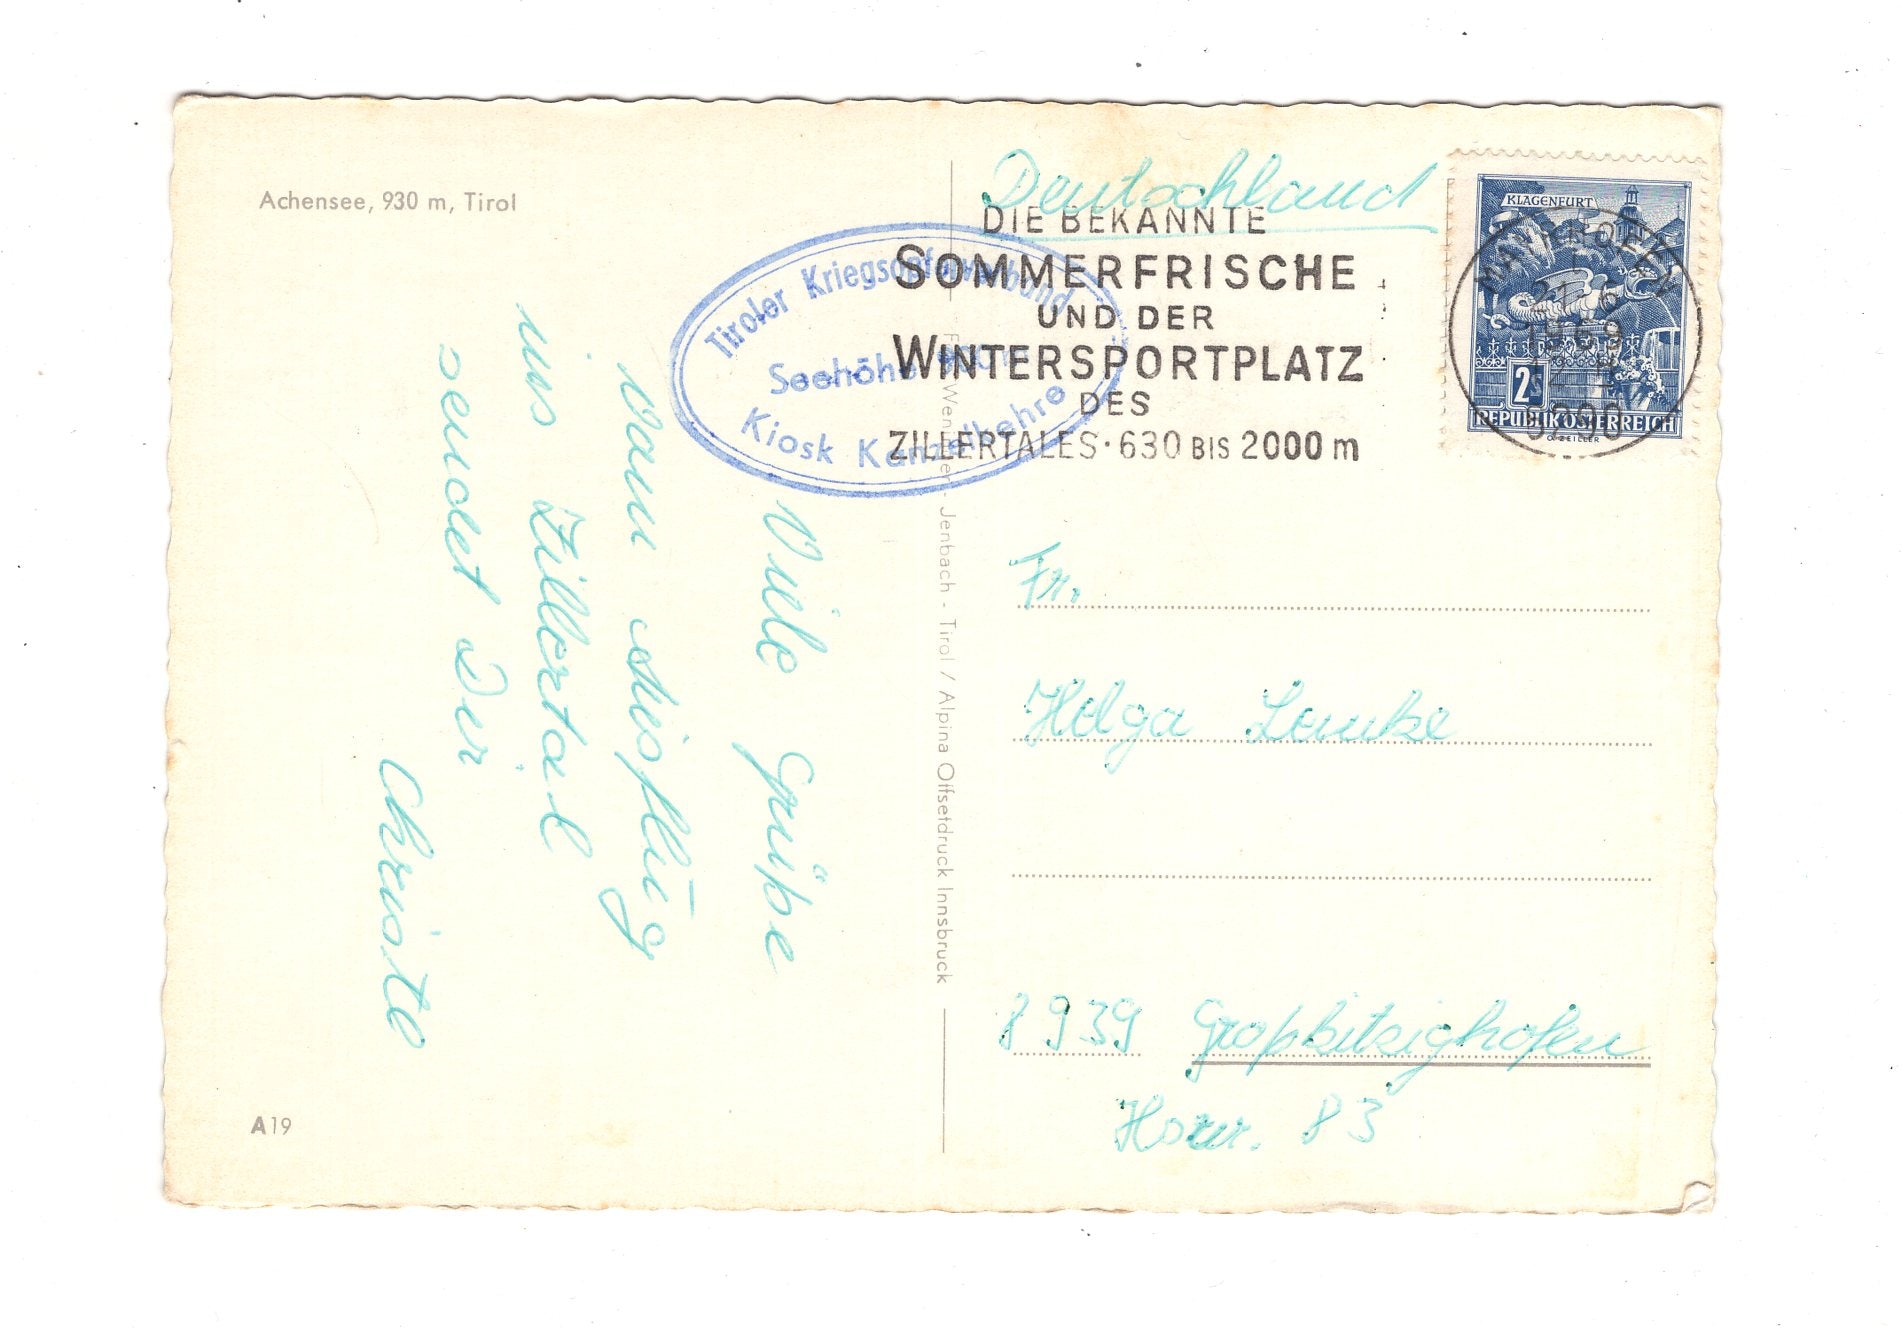 Achensee, 930 m, Tirol
Viele Grüße
vom Ausflug
ins Zillertal
sendet Dir
Christe
A19
Tiroler Kriegsopferverband
Seehöhe
Kiosk Kanzelkehre
Jenbach - Tirol / Alpina Offsetdruck Innsbruck
Deutschland
DIE BEKANNTE
SOMMERFRISCHE
UND DER
WINTERSPORTPLATZ
DES
ZILLERTALES · 630 BIS 2000 m
KLAGENFURT
2S
REPUBLIK ÖSTERREICH
MAYRHOFEN
21. 6
69
6290
Fr.
Helga Lemke
8939 Großkitzighofen
Hsnr. 83